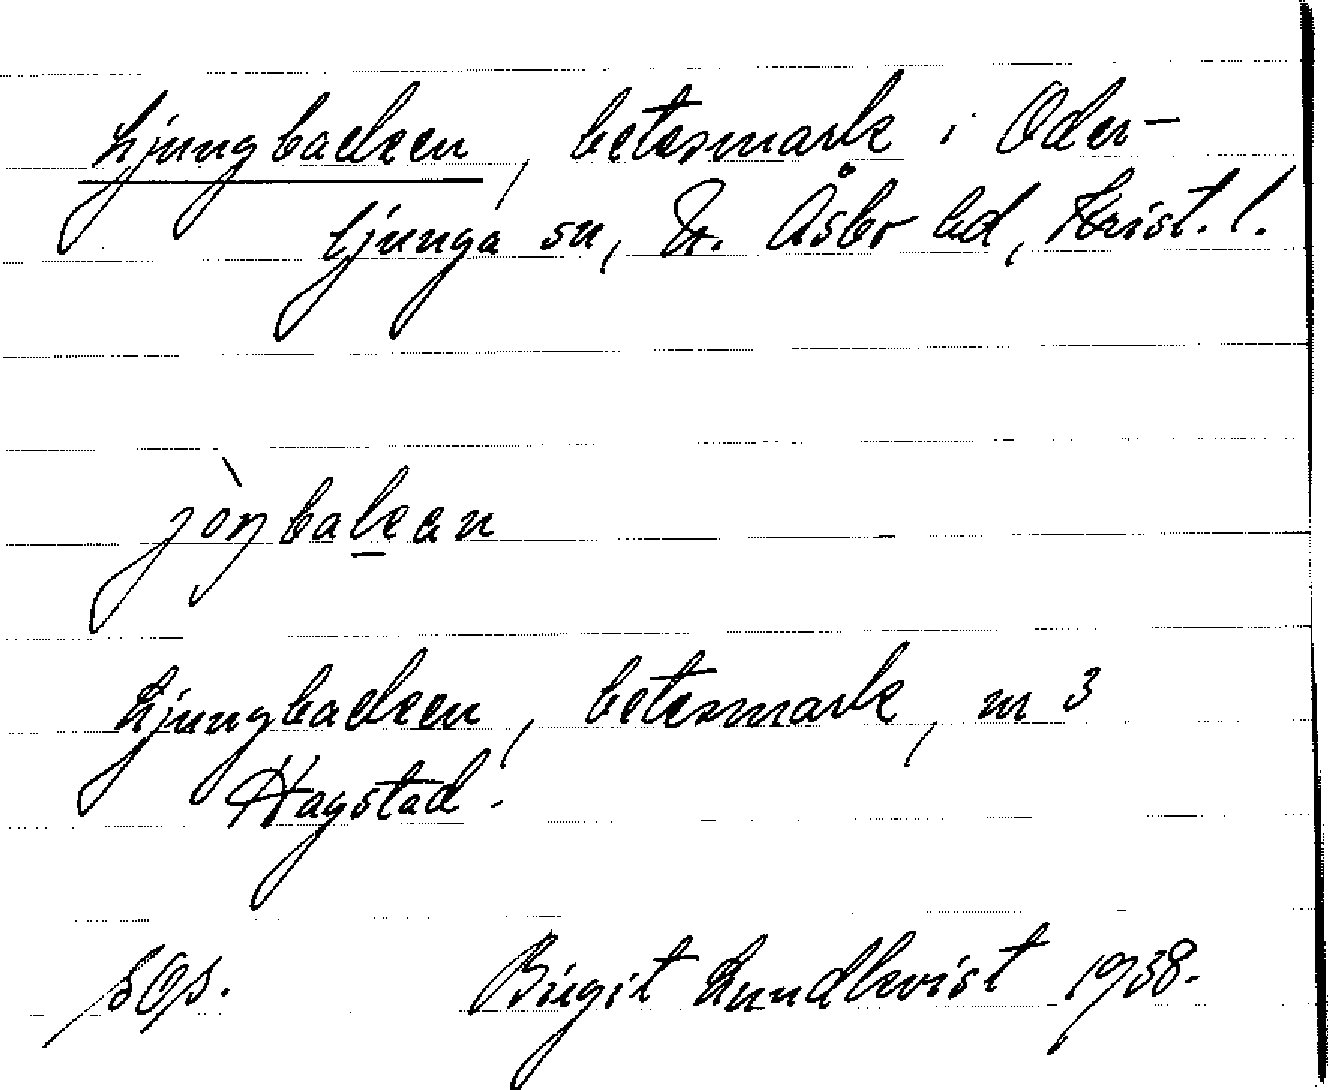 Ljungbacken, betesmark i Oder-
ljunga sn, N. Åsbo hd, Krist. l.
jòŋbakan
Ljungbacken, betesmark, nr 3
Hagstad.
Birgit Lundkvist 1938.